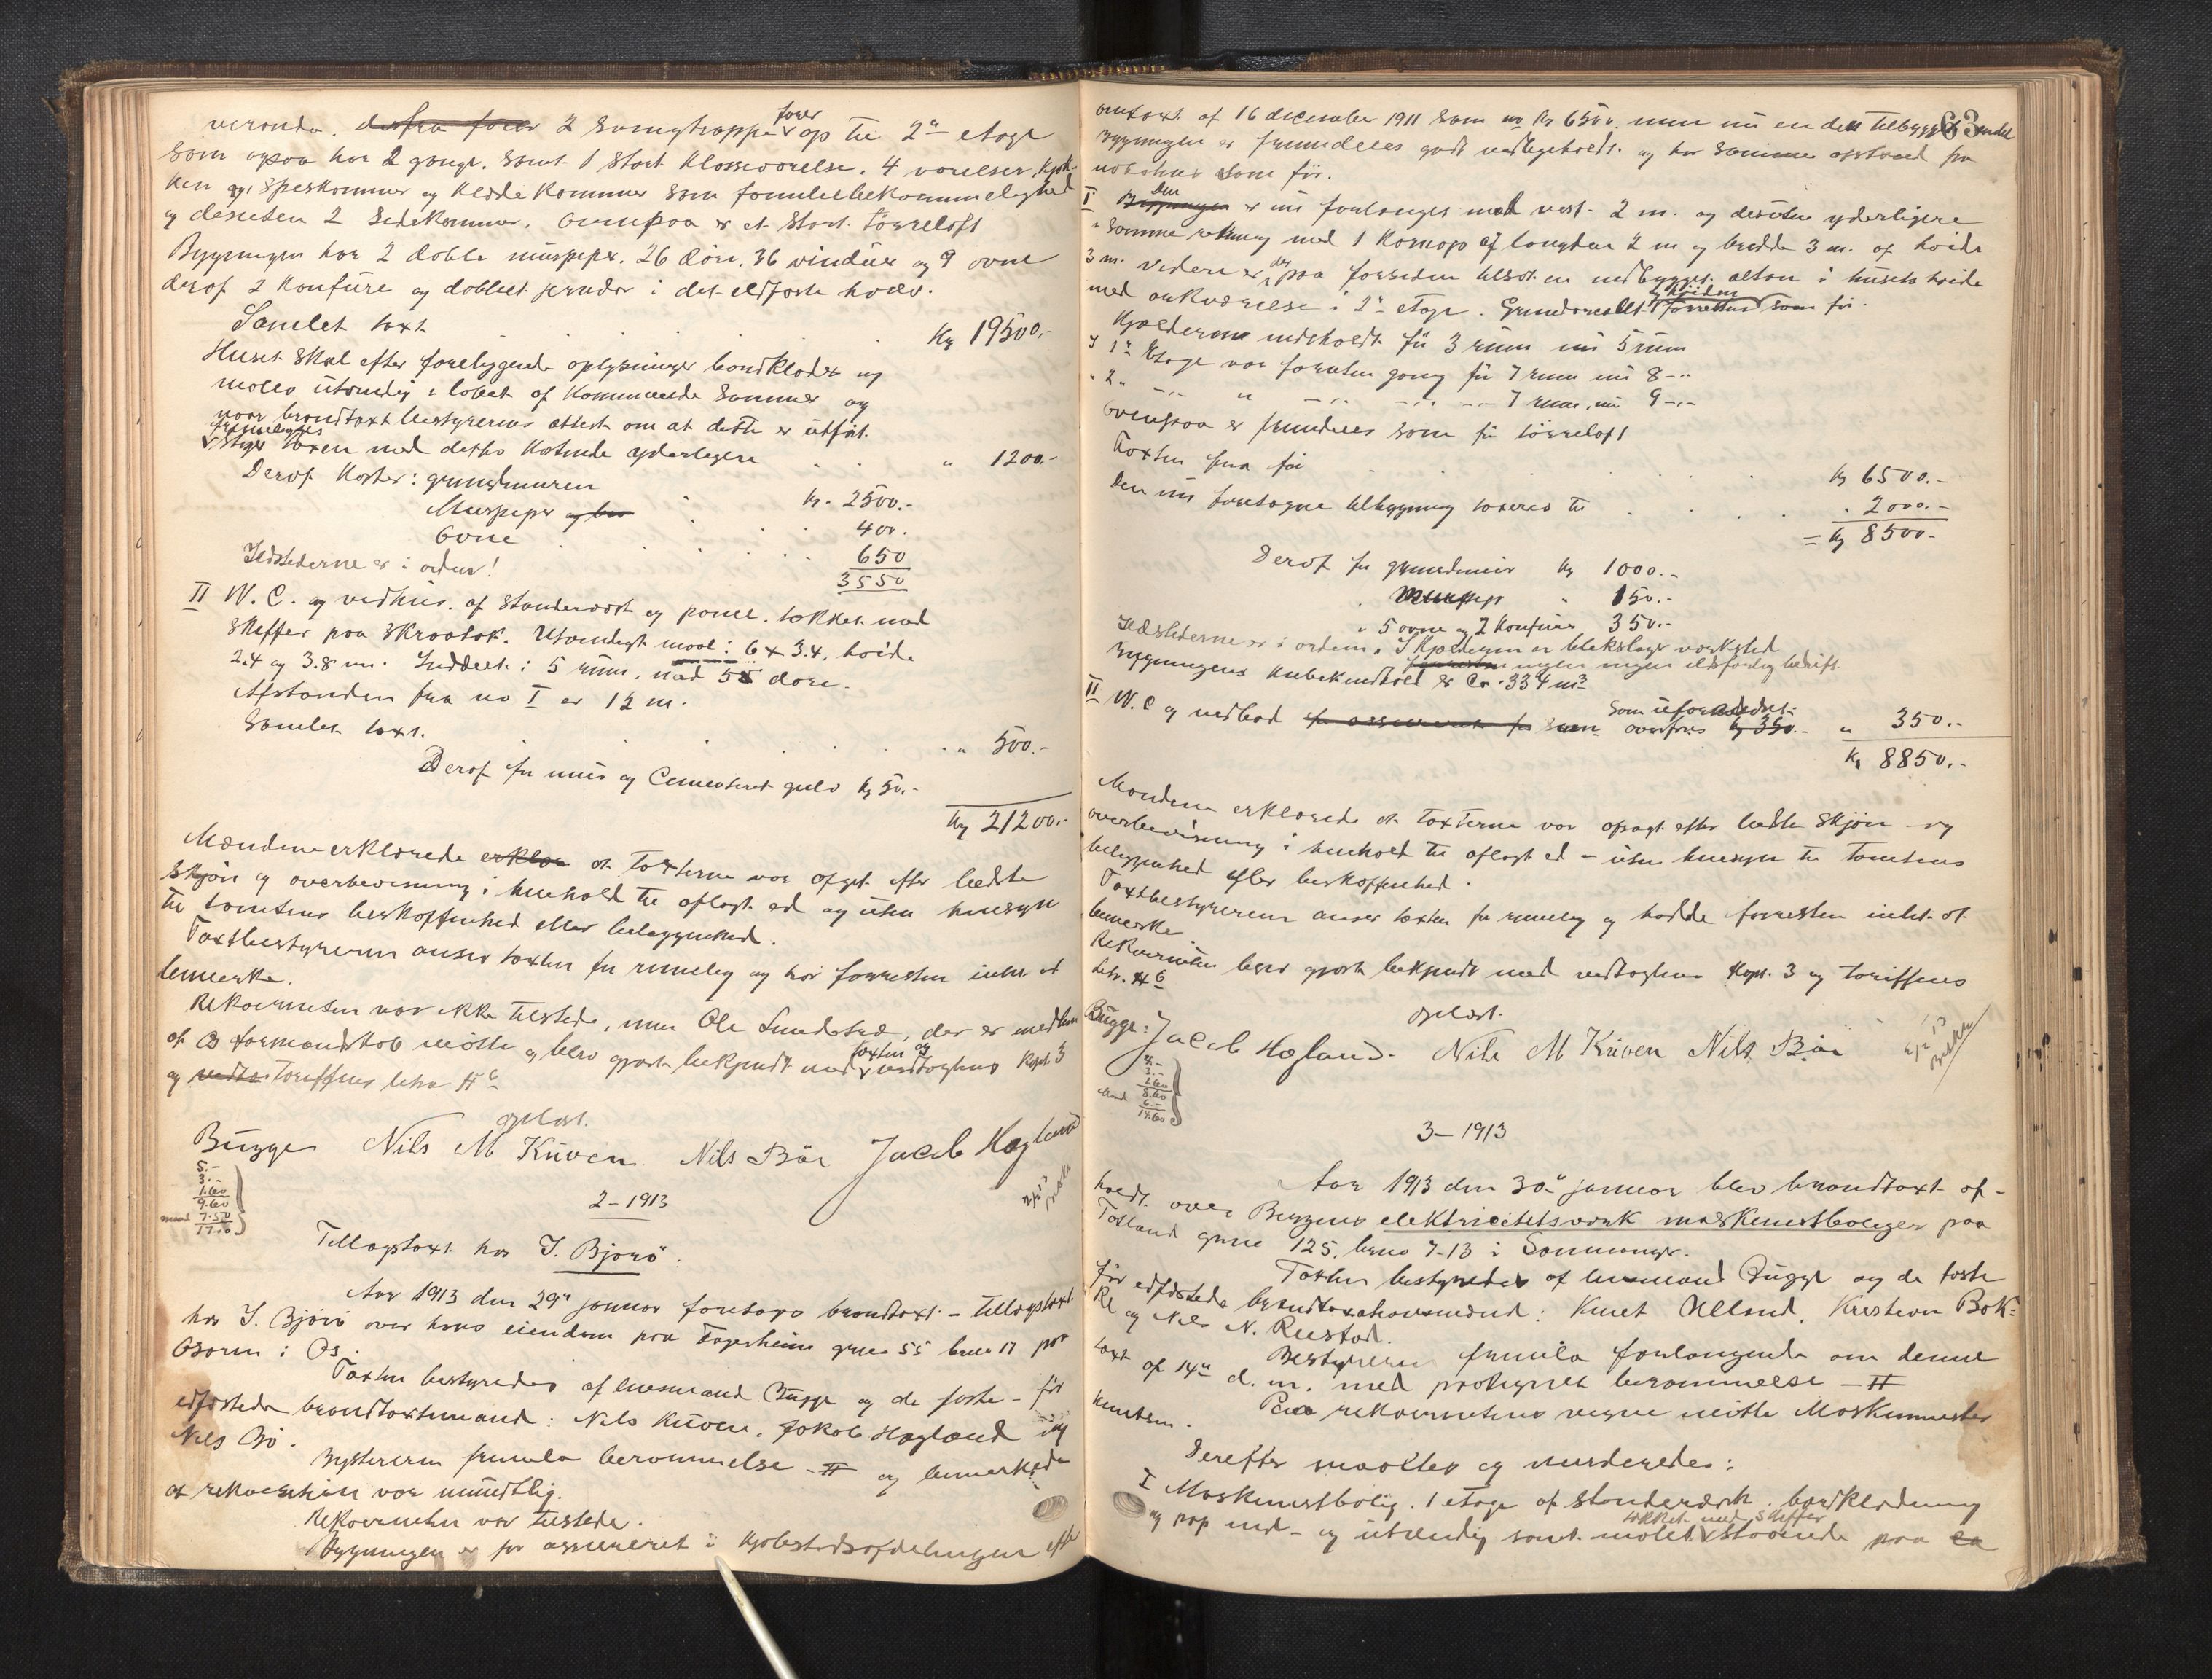 veranda. derfra fører 2 svingtrapper fører op til 2den etage
som ogsaa har 2 gange. samt 1 stort klasseværelse. 4 værelser kjøk-
ken og spiskammer og klædekammer som familiebekvemmelighed
og desuten 2 sidekammer. ovenpaa er et stort tørreloft
Bygningen har 2 doble murpiper. 26 døre. 36 vinduer og 9 ovne
deraf 2 komfure og dobbelt
Samlet taxt Kr 19500,-
Huset skal efter foreliggende oplysninger bordklædes og
males utvendig i løbet af kommende sommer og
naar brandtaxtbestyrerens attest om at dette er utført
fremlægges stiger taxten med dettes kostende yderligere " 1200.-
Deraf koster: grundmuren Kr. 2500.-
Murpiper og bra 400.
Ovne 650
3550
Ildstederne er i orden!
II W.C. og vedhus. af standerværk og panel. tækket med
skiffer paa skraatak. Utvendigt maal: 6 x 3.4, høide
2.4 og 3.8 m. Inddelt i 5 rum. med 5 døre.
Afstanden fra no I er 12 m.
Samlet taxt. " 500.-
Deraf for mur og Cementeret gulv Kr 50.-
Kr 21200.-
Mændene erklærede erklær at taxterne var afgit efter bedste
skjøn og overbevisning i henhold til aflagt ed og uten hensyn
til tomtens beskaffenhed eller beliggenhed.
Taxtbestyreren anser taxten for rimelig og har forresten intet at
bemerke.
Rekvirenten var ikke tilstede, men Ole Sundstad, der er medlem
af formandskab møtte og blev gjort bekjendt med taxten og vedtægtens Kapt. 3
og vedta tariffens litra H6
oplæst.
Bugge Nils M Kuven Nils Bøe Jacob Hagland
5.-
3.-
1.60
9.60
mænd 7.50
17.10
2-1913
Tillægstaxt hos I. Bjørø.
Aar 1913 den 29de januar foretoges brandtaxt - tillægstaxt
hos I. Bjørø over hans eiendom paa Fagerheim gnr 55 bnr 17 paa
Osøren i Os.
Taxten bestyredes af lensmand Bugge og de faste - før
edfæstede brandtaxtmænd: Nils Kuven, Jakob Hagland og
Nils Bø.
Bestyreren fremla berammelse - H og bemerkede
at rekvisitionen var mundtlig.
Rekvirenten var tilstede.
Bygningen er før assureret i Kjøbstadsafdelingen efter
63
omtaxt af 16 december 1911 som no Kr 6500. men nu en del tilbygget
Bygningen er fremdeles godt vedligeholdt. og har samme afstand fra
nabohus som før.
I Bygningen Den er nu forlænget mod vest 2 m. og desuten yderligere
i samme retning med 1 karnap af længden 2 m og bredde 3 m. af høide
3 m. videre er der paa forsiden tilsat en nedbygget altan i husets høide
med arkværelse i 2de etage. Grundarealet og høiden forrettes som før.
Kjælderen indeholdt før 3 rum nu 5 rum
I 1ste Etage var foruten gang før 7 rum nu 8 -"-
" 2den -"- " -"- -"- -"- 7 rum, nu 9 -"-
Ovenpaa er fremdeles som før tørreloft
Taxten fra før Kr 6500.-
Den nu foretagne tilbygning taxeres til " 2000.-
= Kr 8500.-
Deraf for grundmur Kr 1000.-
" Murpipe " 150.-
" 5 ovne og 2 komfure 350.-
Ildstederne er i orden. I Kjælderen er blikslager værksted
forresten ingen ildsfarlig bedrift.
Bygningens kubikindhold er Ca. 334 m3
II W.C og vedbod som uforandret overføres Kr 350.- " 350.-
Kr 8850.-
Mændene erklærede at taxterne var afgit efter bedste skjøn og
overbevisning i henhold til aflagt ed - uten hensyn til tomtens
beliggenhed eller beskaffenhed.
Taxtbestyreren anser taxten for rimelig og hadde forresten intet at
bemerke.
Rekvirenten blev gjort bekjendt med vedtægtens Kapt. 3 og tariffens
litr. H6
oplæst.
Bugge: Jacob Hagland. Nils M Kuven Nils Bøe
3.-
1.60
8.60
Mænd 6.-
14.60
3-1913
Aar 1913 den 30te januar blev brandtaxt af-
holdt over Bergens elektricitetsværk maskinistboliger paa
Tøsland gnr 125. brno 7-13 i Samnanger.
Taxten bestyredes af lensmand Bugge og de faste
før edfæstede brandtaxationsmænd: Knut Aalland, Kristian Bok-
og Nils N. Reistad.
Bestyreren fremla forlangende om denne
taxt af 14de d. m. med paategnet berammelse - H
Paa rekvirentens vegne møtte Maskinmester
Knutsen.
Derefter maaltes og vurderedes:
I Maskinistbolig. 1 etage af standerværk. bordklædning
og pap ind- og utvendig samt malet tækket med skiffer staaende paa en